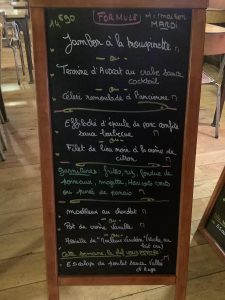 14€90 FORMULE
MARDI
Jambon à la trouspinette
ou
Terrine d'Avocat au crabe sauce
cocktail
ou
Céleri remoulade à l'ancienne
Effiloché d'épaule de porc confite
sauce barbecue
ou
Filet de lieu noir à la crème de
citron
Garnitures: frites, riz, fondue de
poireaux, mogette, haricots verts
ou purée de panais
moelleux au chocolat
ou
Pot de crème Vanille
ou
Cette semaine, le chef vous propose
Escalope de poulet sauce Vallée
d'Auge